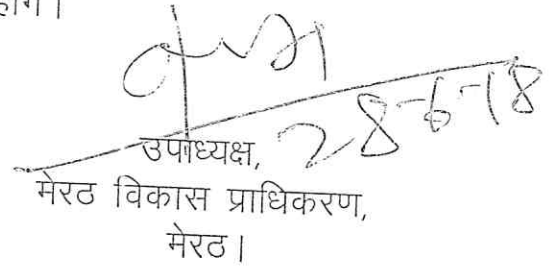 होंगे।
28-6-18
उपाध्यक्ष,
मेरठ विकास प्राधिकरण,
मेरठ।